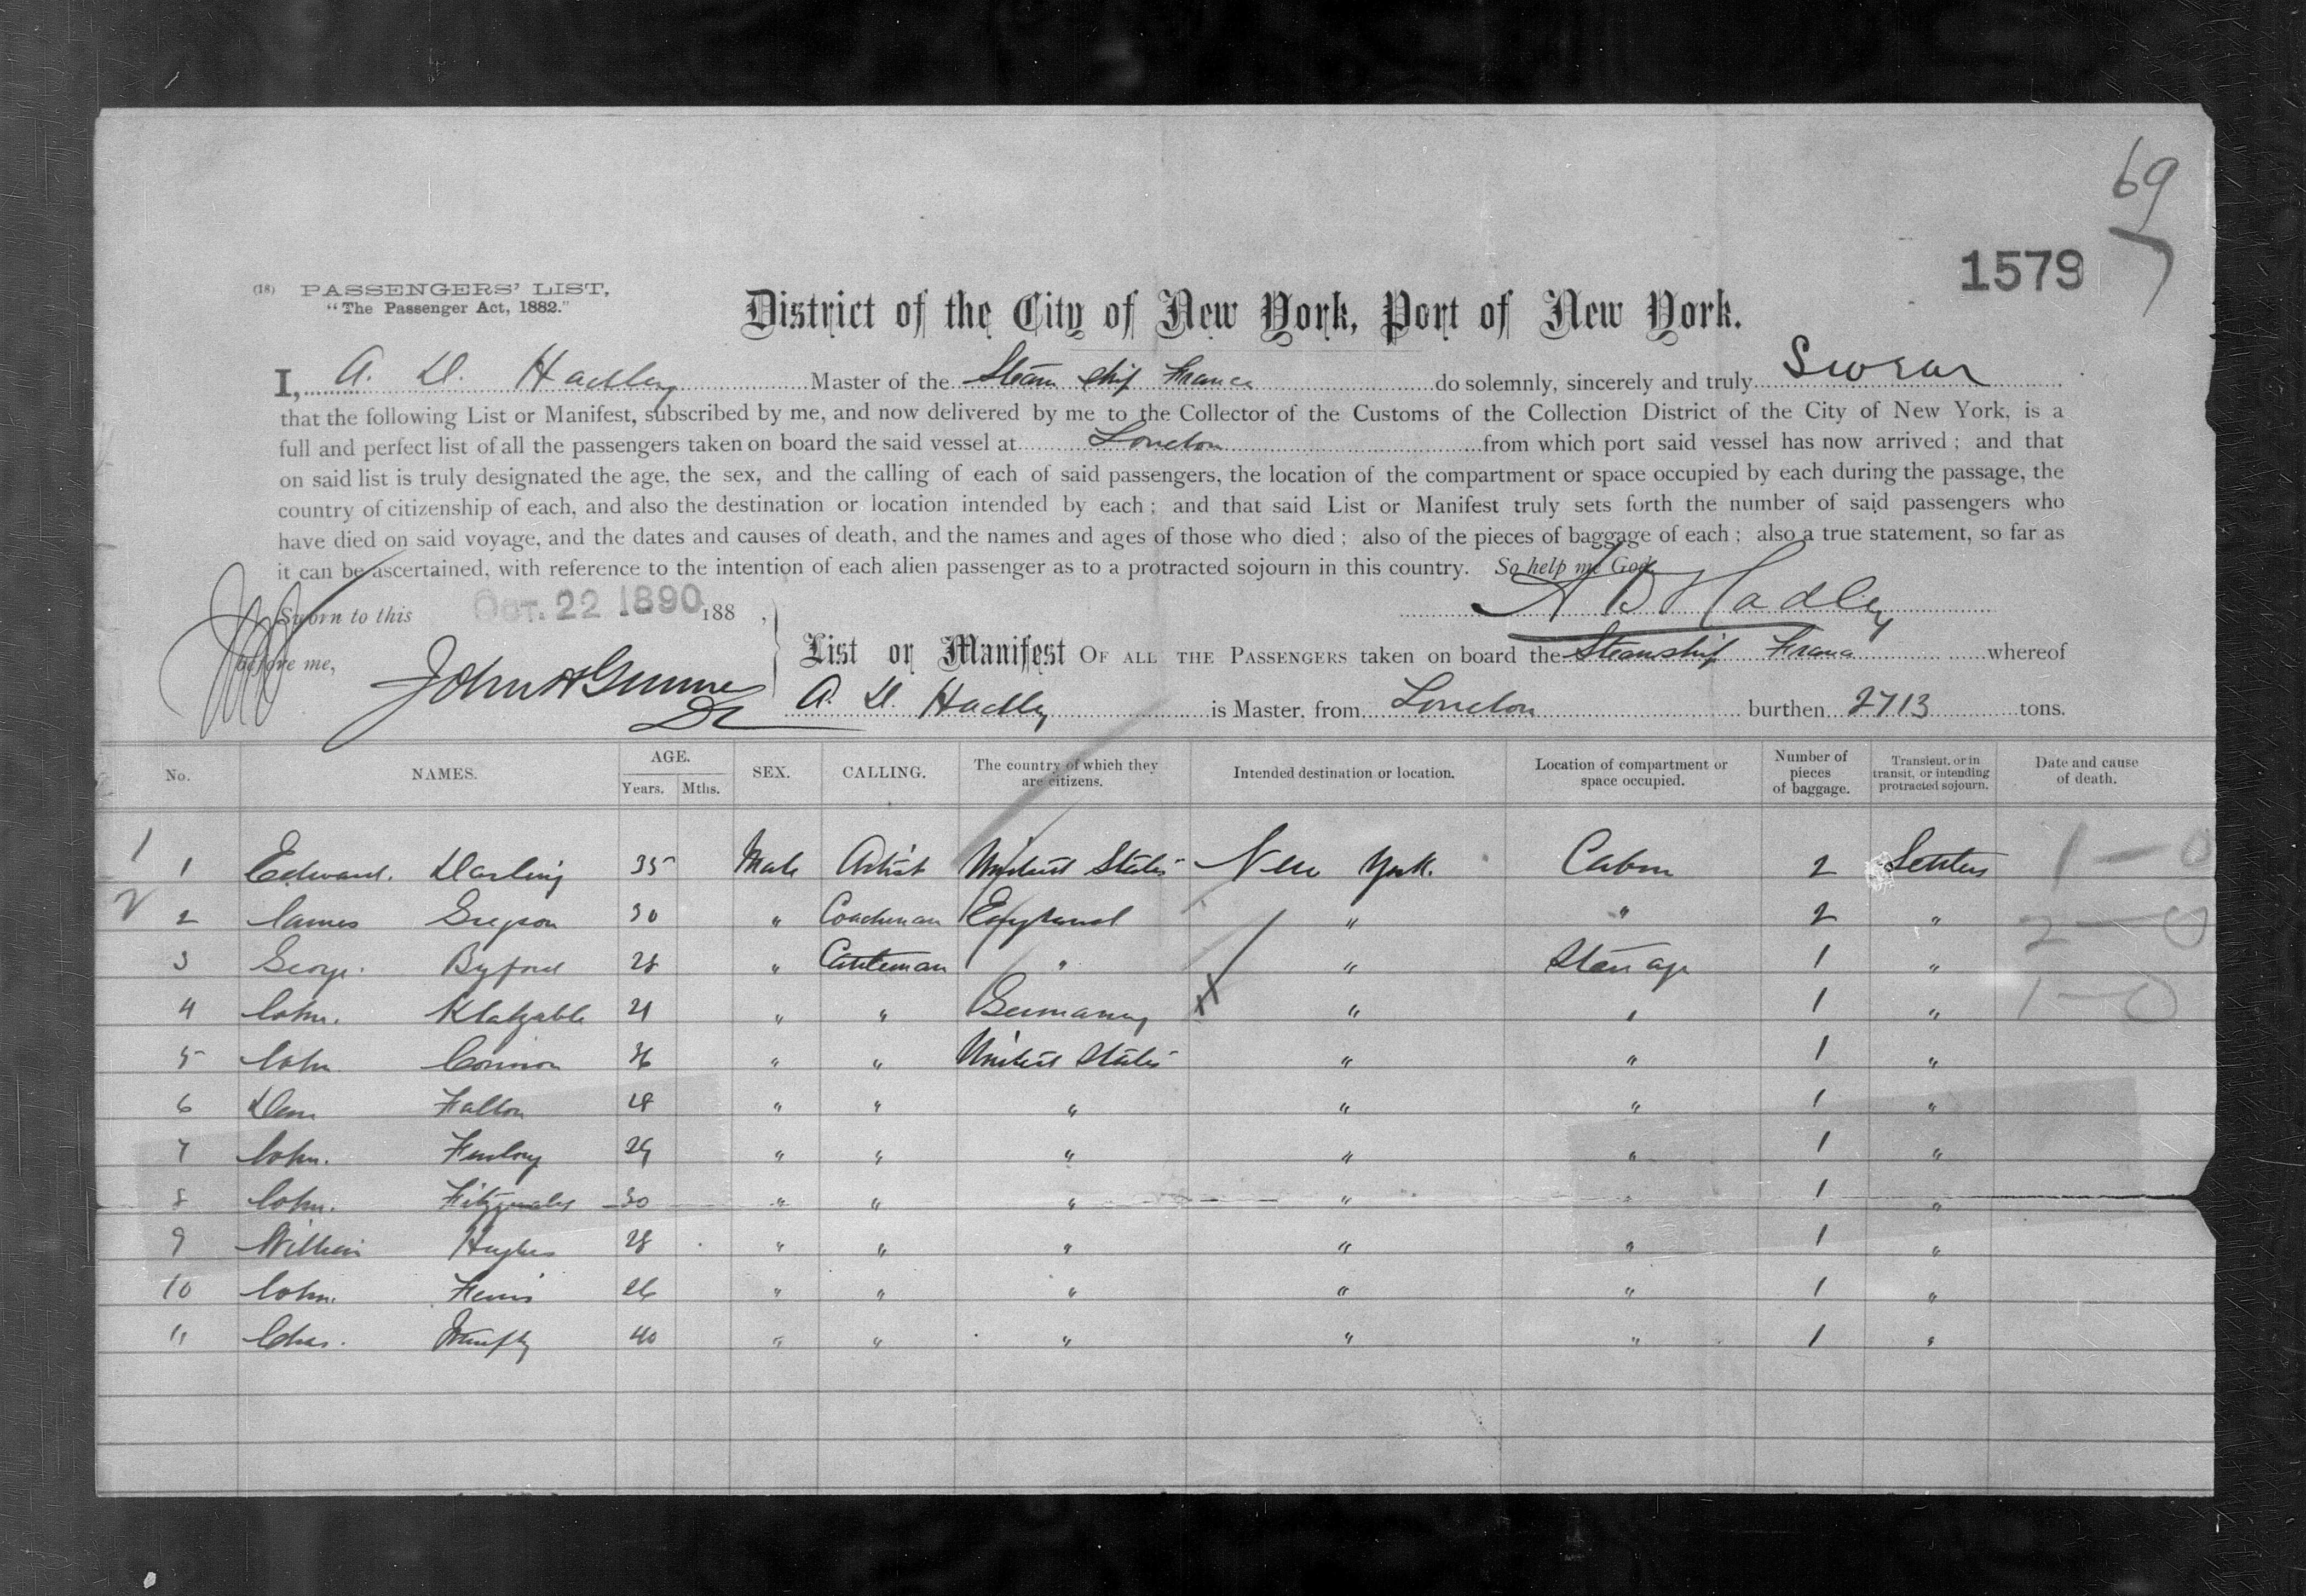 69
1579
(18) PASSENGERS' LIST,
"The Passenger Act, 1882."
District of the City of New York, Port of New York.
I, A. D. Hadley Master of the Steam Ship France do solemnly, sincerely and truly Swear
that the following List or Manifest, subscribed by me, and now delivered by me to the Collector of the Customs of the Collection District of the City of New York, is a
full and perfect list of all the passengers taken on board the said vessel at London from which port said vessel has now arrived; and that
on said list is truly designated the age, the sex, and the calling of each of said passengers, the location of the compartment or space occupied by each during the passage, the
country of citizenship of each, and also the destination or location intended by each; and that said List or Manifest truly sets forth the number of said passengers who
have died on said voyage, and the dates and causes of death, and the names and ages of those who died; also of the pieces of baggage of each; also a true statement, so far as
it can be ascertained, with reference to the intention of each alien passenger as to a protracted sojourn in this country. So help me God.
Sworn to this OCT. 22 1890 188 ,
A D Hadley
before me,
List or Manifest OF ALL THE PASSENGERS taken on board the Steamship France whereof
A. D. Hadley is Master, from London burthen 2713 tons.
No. NAMES. AGE. Years. Mths. SEX. CALLING. The country of which they are citizens. Intended destination or location. Location of compartment or space occupied. Number of pieces of baggage. Transient, or in transit, or intending protracted sojourn. Date and cause of death.
1 1 Edward. Darling 35 Male Artist United States New York. Cabin 2 1 — 0
2 2 James Gregson 30 " Coachman England " " 2 " 2 — 0
3 George. Byford 28 " Cattleman " " Steerage 1 "
4 John. 21 " " Germany " " 1 " 1 — 0
5 John Connon 36 " " United States " " 1 "
6 Dan Fallon 28 " " " " " 1 "
7 John. 29 " " " " " 1 "
8 John. Fitzgerald 30 " " " " " 1 "
9 William Hughes 28 " " " " " 1 "
10 John. 26 " " " " " 1 "
11 Chas. Murphy 40 " " " " " 1 "